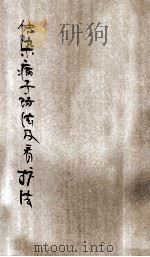 传染病予防法及看护法
mtoou.info